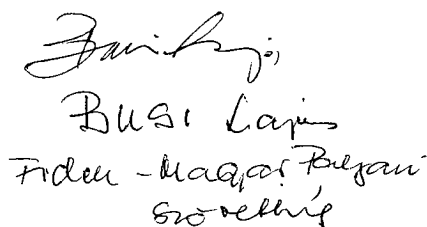 Busi Lajos
Fidesz - Magyar Polgári
Szövetség